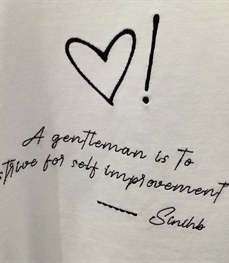 !
A gentleman is to
strive for self improvement